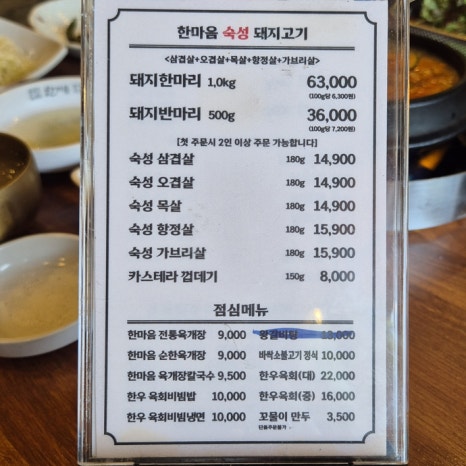 한마음 숙성 돼지고기
<삼겹살+오겹살+목살+항정살+가브리살>
돼지한마리 1,0kg 63,000
(100g당 6,300원)
돼지반마리 500g 36,000
(100g당 7,200원)
[첫 주문시 2인 이상 주문 가능합니다]
숙성 삼겹살 180g 14,900
숙성 오겹살 180g 14,900
숙성 목살 180g 14,900
숙성 항정살 180g 15,900
숙성 가브리살 180g 15,900
카스테라 껍데기 150g 8,000
점심메뉴
한마음 전통육개장 9,000 왕갈비탕 13,000
한마음 순한육개장 9,000 바싹소불고기 정식 10,000
한마음 육개장칼국수 9,500 한우육회(대) 22,000
한우 육회비빔밥 10,000 한우육회(중) 16,000
한우 육회비빔냉면 10,000 꼬물이 만두 3,500
단품주문불가